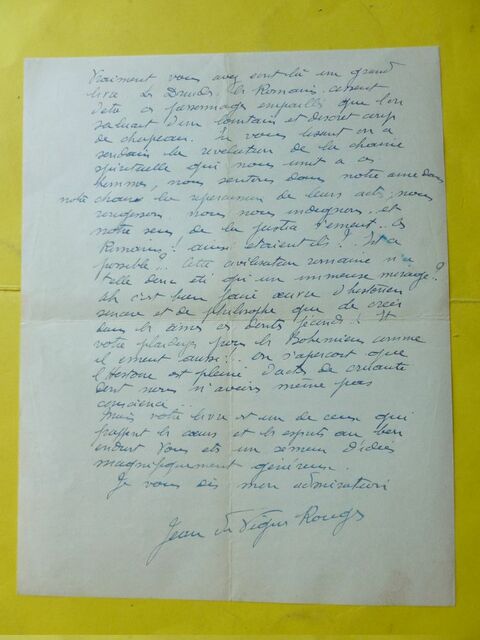 Vraiment vous avez écrit là un grand
livre Les Druides, les Romains cessent
d'être ces personnages empaillés que l'on
saluait d'un lointain et discret coup
de chapeau. En vous lisant on a
soudain la révélation de la chaine
spirituelle qui nous unit à ces
hommes, nous sentons dans notre âme dans
notre chair la répercussion de leurs actes, nous
rougissons nous nous indignons et
notre sens de la justice s'émeut.. Ces
Romains ! ainsi étaient ils ? Est ce
possible ?.. Cette civilisation romaine n'a
telle donc été qu'un immense mirage ?
Ah c'est bien faire œuvre d'historien
sincère et de philosophe que de créer
dans les âmes ces doutes féconds ! Et
votre plaidoyer pour les Bohémiens comme
il émeut aussi !.. on s'aperçoit que
l'Histoire est pleine d'actes de cruauté
dont nous n'avions même pas
conscience..
Mais votre livre est un de ceux qui
frappent les cœurs et les esprits au bon
endroit Vous êtes un semeur d'idées
magnifiquement généreux.
Je vous dis mon admiration
Jean des Vignes Rouges